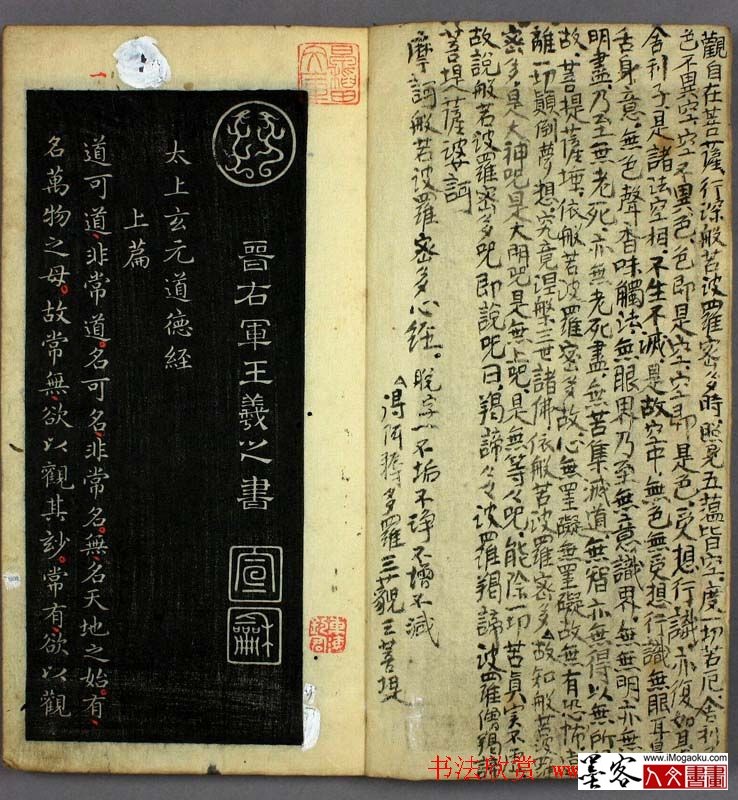 觀自在菩薩,行深般若波羅密多時照見五蘊皆空,度一切苦厄舍利
色不異空,空不異色,色即是空,空即是色,受想行識,亦復如是
舍利子是諸法空相,不生不滅,是故空中,無色無受想行識無眼耳
舌身意,無色聲香味觸法,無眼界乃至無意識界,無無明亦無
明盡,乃至無老死,亦無老死盡,無苦集滅道,無智亦無得以無所
故,菩提薩埵,依般若波羅密多故,心無罣礙無罣礙故無有恐怖遠
離一切顛倒夢想究竟涅槃三世諸佛依般若波羅密多故知般若波
密多是大神咒是大明咒是無上咒是無等々咒,能除一切苦真实不虛
故說般若波羅密多咒即說咒曰,揭諦々々波羅揭諦波羅僧揭諦
菩提薩婆訶
摩訶般若波羅密多心經。脫字一不垢不淨不增不減
得阿耨多羅三藐三菩提
晉右軍王羲之書
宣
龢
太上玄元道德經
上篇
道可道非常道名可名非常名無名天地之始有
名萬物之母故常無欲以觀其妙常有欲以觀
书法欣赏
墨客
www.iMogaoku.com
人文書畫